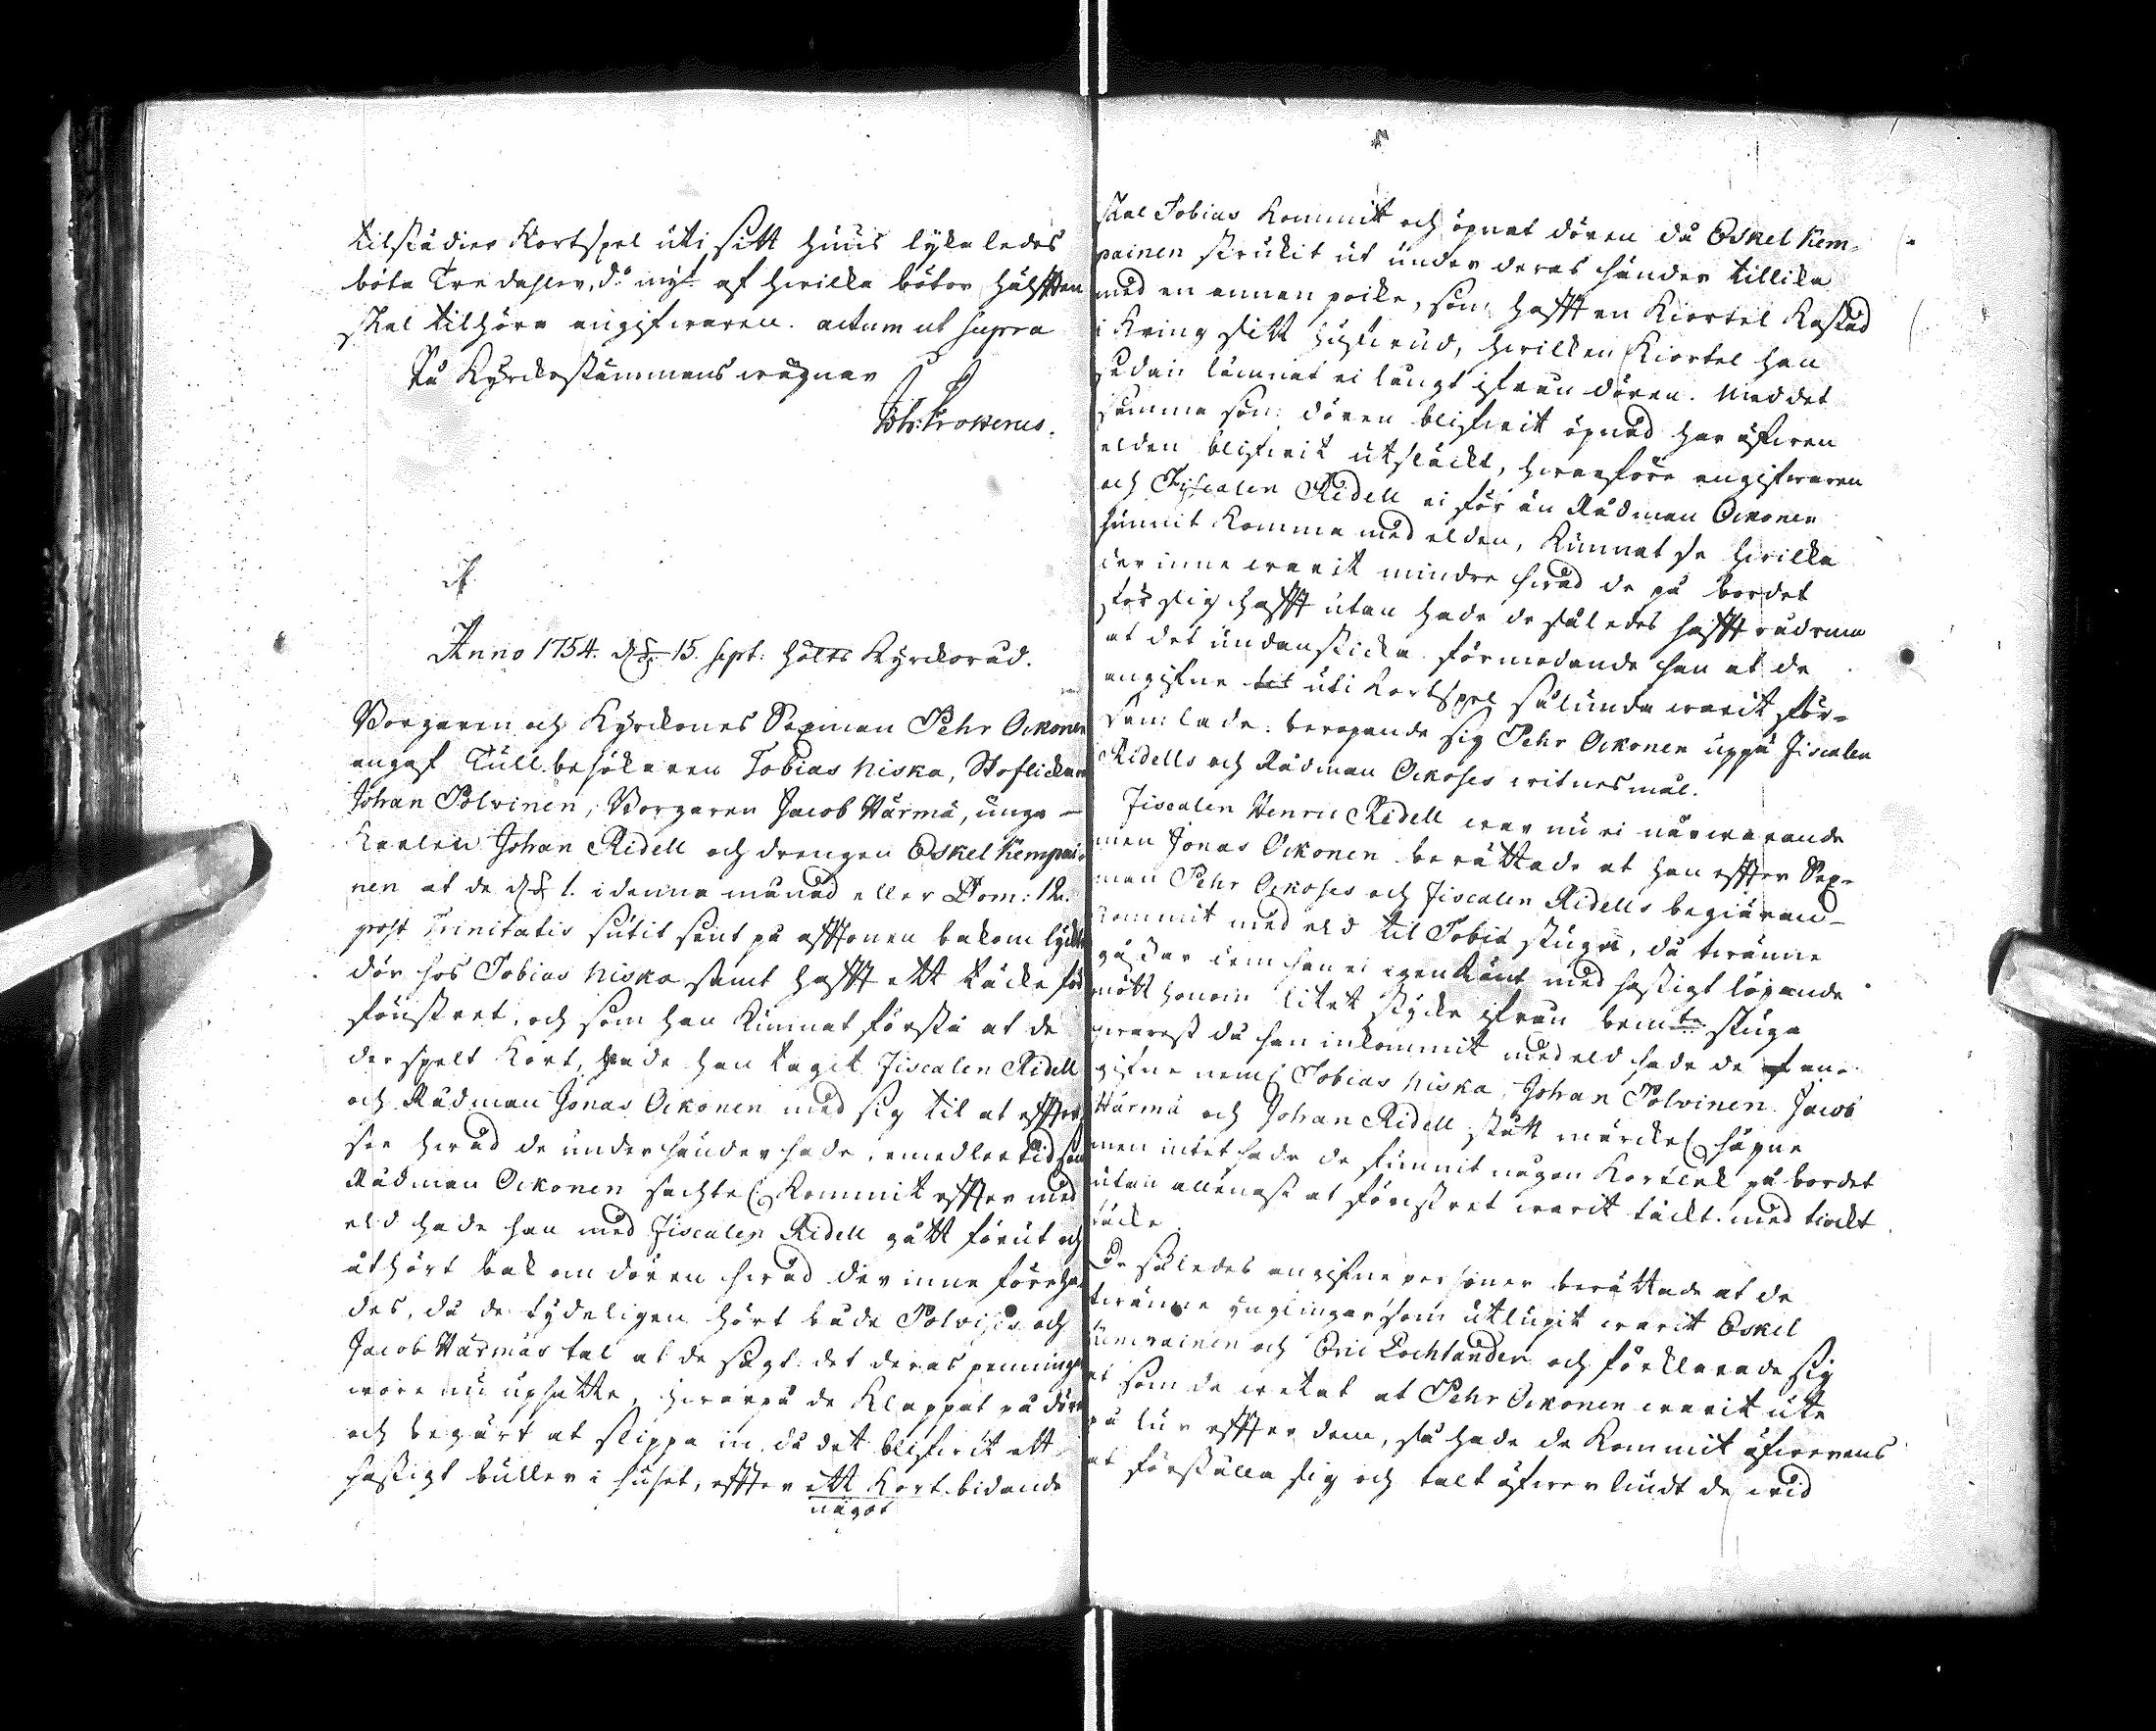 tilstädier Kortspel uti sitt huus lykaledes
böta Tre dahler, d:o mÿt af hwilka böter hälfften
skal tilhöra angifwaren. actum ut supra
På Kyrkostämmans wägnar
Joh: Frosterus.
Anno 1754. d. 15. Sept: höltes Kyrckoråd.
Borgaren och Kyrckones Sexman Pehr Ockonen
angaf Tullbesökaren Tobias Niska, Skoflickaren
Johan Polvinen, Borgaren Jacob Värmä, unga
Karlen Johan Ridell och drengen Eskel Kempai-
nen at de d. 1. i denna månad eller Dom: 12.
post Trinitatis sutit sent på afftonen bakom lychta
dör hos Tobias Niska samt hafft ett täcke för
fönstret, och som han kunnat förstå at de
der spelt Kort, hade han tagit Fiscalen Ridell
och Rådman Jonas Ockonen med sig til at effter
see hwad de under händer hade, emedlertid som
Rådman Ockonen sachtel. Kommit effter med
eld hade han med Fiscalen Ridell gått förut och
åthört bakom dören hwad der inne förehaf
des, då de tydeligen hört både Polvises och
Jacob Värmäs tal at de sagt det deras penningar
wore nu upsatte, hwarpå de Klappat på dören
och begärt at slippa in, då det blifwit ett
hastigt buller i huset, effter ett Kort bidande
något
skal Tobias Kommit och öpnat dören då Eskel Kem-
painen strukit ut under deras händer tillika
med en annan poike, som hafft en Kiortel Kastad
i Kring sitt hufwud, hwilken Kiortel han
sedan lämnat ei långt ifrån dören. Med det
samma som dören blifwit öpnad har äfwen
elden blifwit utsläckt, hwarföre angifwaren
och Fiscalen Ridell ei för än Rådman Ockonen
hunnit Komma med elden, Kunnat se hwilka
der inne warit mindre hwad de på bordet
för sig hafft utan hade de således hafft rådrum
at det undansticka förmodande han at de
angifne uti Kortspel sålunda warit för-
samlade: beropande sig Pehr Ockonen uppå Fiscalen
Ridells och Rådman Ockoses witnesmål.
Fiscalen Henric Ridell war nu ei närwarande
men Jonas Ockonen berättade at han effter Sex-
man Pehr Ockoses och Fiscalen Ridells begiäran
Kommit med eld til Tobiæ stuga, då twänne
gåssar dem han ei igenkänt med hastigt löpande
mött honom litet stycke ifrån bem:te stuga
hwarest då han inkommit med eld hade de an-
gifne neml. Tobias Niska, Johan Polvinen. Jacob
Värmä och Johan Ridell stått märckel. häpne
men intet hade de funnit någon Kortlek på bordet
utan allenast at fönstret warit täckt med tiockt
täcke.
De således angifne personer berättade at de
twänne ynglingar som utlupit warit Eskel
Kempainen och Eric Lochlander och förklarade sig
at som de wetat at Pehr Ockonen warit ute
på lur effter dem, så hade de Kommit äfwerens
at förställa sig och talt äfwer liudt de wid